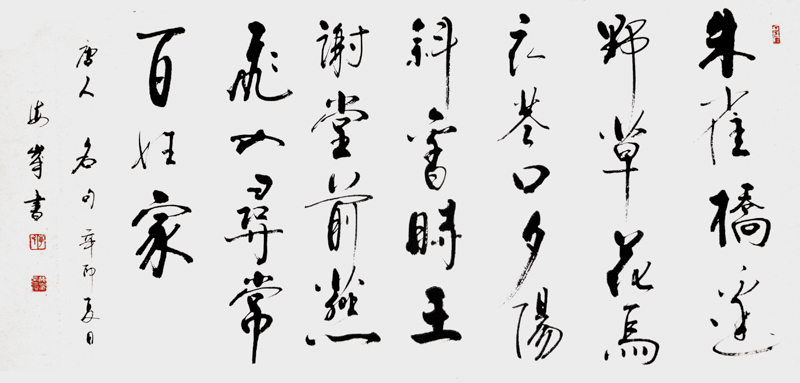 朱雀橋邊
野草花烏
衣巷口夕陽
斜舊時王
謝堂前燕
飛入尋常
百姓家
唐人名句辛卯夏日
海峯書